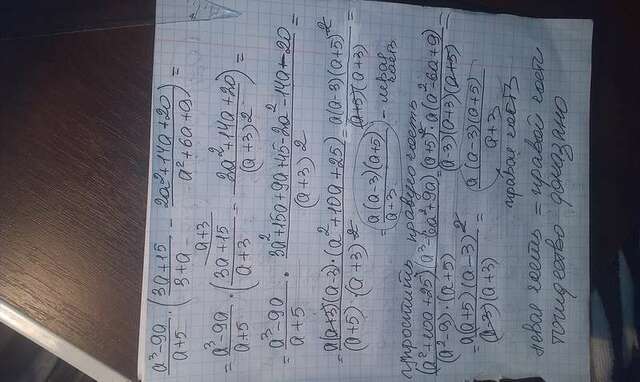 (a³-9a)/(a+5) · ((3a+15)/(3+a) - (2a²+14a+20)/(a²+6a+9)) =
a+3
= (a³-9a)/(a+5) · ((3a+15)/(a+3) - (2a²+14a+20)/(a+3)²) =
= (a³-9a)/(a+5) · (3a²+15a+9a+45-2a²-14a-20)/(a+3)² =
= (a(a+3)(a-3)·(a²+10a+25))/((a+5)·(a+3)²) = (a(a-3)(a+5)²)/((a+5)(a+3)) =
= (a(a-3)(a+5))/(a+3) - левая часть
Упростить правую часть
((a²+10a+25)(a³-6a²+9a))/((a²-9)·(a+5)) = ((a+5)² a(a²-6a+9))/((a-3)(a+3)(a+5)) =
= (a(a+5)(a-3)²)/((a-3)(a+3)) = (a(a-3)(a+5))/(a+3)
правая часть
левая часть = правой части
тождество доказано